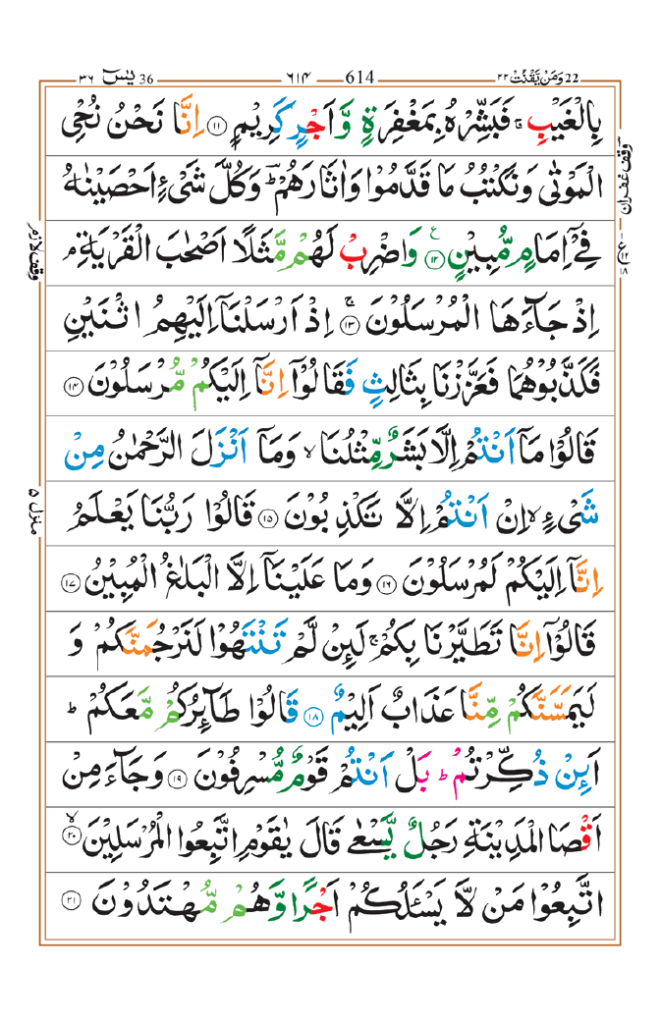 22 وَمَنْ يَّقْنُتْ ٢٢
614 ٦١٤
36 يٰسٓ ٣٦
بِالْغَيْبِ ۚ فَبَشِّرْهُ بِمَغْفِرَةٍ وَّاَجْرٍ كَرِيْمٍ ﴿۱۱﴾ اِنَّا نَحْنُ نُحْيِ
الْمَوْتٰى وَنَكْتُبُ مَا قَدَّمُوْا وَاٰثَارَهُمْ ؕ وَكُلَّ شَىْءٍ اَحْصَيْنٰهُ
فِىْۤ اِمَامٍ مُّبِيْنٍ ﴿۱۲﴾ وَاضْرِبْ لَهُمْ مَّثَلًا اَصْحٰبَ الْقَرْيَةِ ۘ
اِذْ جَآءَهَا الْمُرْسَلُوْنَ ۚ ﴿۱۳﴾ اِذْ اَرْسَلْنَاۤ اِلَيْهِمُ اثْنَيْنِ
فَكَذَّبُوْهُمَا فَعَزَّزْنَا بِثَالِثٍ فَقَالُوْۤا اِنَّاۤ اِلَيْكُمْ مُّرْسَلُوْنَ ﴿۱۴﴾
قَالُوْا مَاۤ اَنْتُمْ اِلَّا بَشَرٌ مِّثْلُنَا ۙ وَمَاۤ اَنْزَلَ الرَّحْمٰنُ مِنْ
شَىْءٍ ۙ اِنْ اَنْتُمْ اِلَّا تَكْذِبُوْنَ ﴿۱۵﴾ قَالُوْا رَبُّنَا يَعْلَمُ
اِنَّاۤ اِلَيْكُمْ لَمُرْسَلُوْنَ ﴿۱۶﴾ وَمَا عَلَيْنَاۤ اِلَّا الْبَلٰغُ الْمُبِيْنُ ﴿۱۷﴾
قَالُوْۤا اِنَّا تَطَيَّرْنَا بِكُمْ ۚ لَئِنْ لَّمْ تَنْتَهُوْا لَنَرْجُمَنَّكُمْ وَ
لَيَمَسَّنَّكُمْ مِّنَّا عَذَابٌ اَلِيْمٌ ﴿۱۸﴾ قَالُوْا طَآئِرُكُمْ مَّعَكُمْ ؕ
اَئِنْ ذُكِّرْتُمْ ؕ بَلْ اَنْتُمْ قَوْمٌ مُّسْرِفُوْنَ ﴿۱۹﴾ وَجَآءَ مِنْ
اَقْصَا الْمَدِيْنَةِ رَجُلٌ يَّسْعٰى قَالَ يٰقَوْمِ اتَّبِعُوا الْمُرْسَلِيْنَ ۙ ﴿۲۰﴾
اتَّبِعُوْا مَنْ لَّا يَسْئَلُكُمْ اَجْرًا وَّهُمْ مُّهْتَدُوْنَ ﴿۲۱﴾
وقف غفران
وقف لازم
منزل ۵